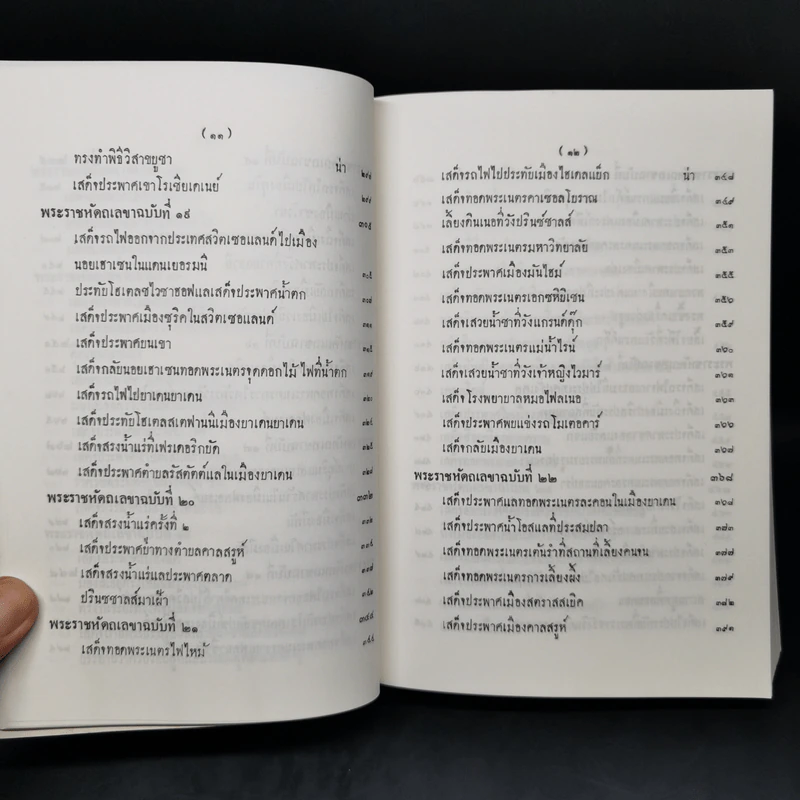 (๑๑)
น่า
ทรงทำพิธีวิสาขยูชา ๒๙๘
เสด็จประพาศเขาโรเชียเดเนย์ ๒๙๙
พระราชหัตถเลขาฉบับที่ ๑๙ ๓๐๕
เสด็จรถไฟออกจากประเทศสวิตเซอแลนด์ไปเมือง
นอยเฮาเซนในแดนเยอรมนี ๓๐๕
ประทับโฮเตลชไวซาฮอฟแลเสด็จประพาศน้ำตก ๓๐๗
เสด็จประพาศเมืองซุริคในสวิตเซอแลนด์ ๓๑๑
เสด็จประพาศบนเขา ๓๑๕
เสด็จกลับนอยเฮาเซนทอดพระเนตรจุดดอกไม้ไฟที่น้ำตก ๓๑๙
เสด็จรถไฟไปบาเดนบาเดน ๓๒๑
เสด็จประทับโฮเตลสเตฟานนีเมืองบาเดนบาเดน ๓๒๔
เสด็จสรงน้ำแร่ที่เฟรเดอริกบัด ๓๒๕
เสด็จประพาศตำบลรัสตัดต์แลในเมืองบาเดน ๓๒๗
พระราชหัตถเลขาฉบับที่ ๒๐ ๓๓๒
เสด็จสรงน้ำแร่ครั้งที่ ๒
เสด็จประพาศป่าทางตำบลคาลสรูห์
เสด็จสรงน้ำแร่แลประพาศตลาด
ปรินซชาลส์มาเฝ้า
พระราชหัตถเลขาฉบับที่ ๒๑ ๓๔๔
เสด็จทอดพระเนตรไฟไหม้ ๓๔๔
(๑๒)
น่า
เสด็จรถไฟไปประทับเมืองไฮเดลแบ็ก ๓๔๘
เสด็จทอดพระเนตรคาเซอลโบราณ ๓๔๙
เลี้ยงดินเนอที่วังปรินซ์ชาลส์ ๓๕๑
เสด็จทอดพระเนตรมหาวิทยาลัย ๓๕๓
เสด็จประพาศเมืองมันไฮม์ ๓๕๕
เสด็จทอดพระเนตรเอกซหิบิเชน ๓๕๖
เสด็จเสวยน้ำชาที่วังแกรนด์ดุ๊ก ๓๕๙
เสด็จทอดพระเนตรแม่น้ำไรน์ ๓๖๐
เสด็จเสวยน้ำชาที่วังเจ้าหญิงไวมาร์ ๓๖๑
เสด็จโรงพยาบาลหมอไฟลเนอ ๓๖๓
เสด็จประพาศพบแข่งรถโมเตอคาร์ ๓๖๖
เสด็จกลับเมืองบาเดน ๓๖๗
พระราชหัตถเลขาฉบับที่ ๒๒ ๓๖๘
เสด็จประพาศแลทอดพระเนตรละคอนในเมืองบาเดน ๓๖๘
เสด็จประพาศน้ำโอสแลที่ประสมปลา ๓๗๓
เสด็จทอดพระเนตรเต้นรำที่สถานที่เลี้ยงคนจน ๓๗๗
เสด็จทอดพระเนตรการเลี้ยงผึ้ง ๓๗๙
เสด็จประพาศเมืองสตราสสเบิค ๓๘๒
เสด็จประพาศเมืองคาลสรูห์ ๓๙๑